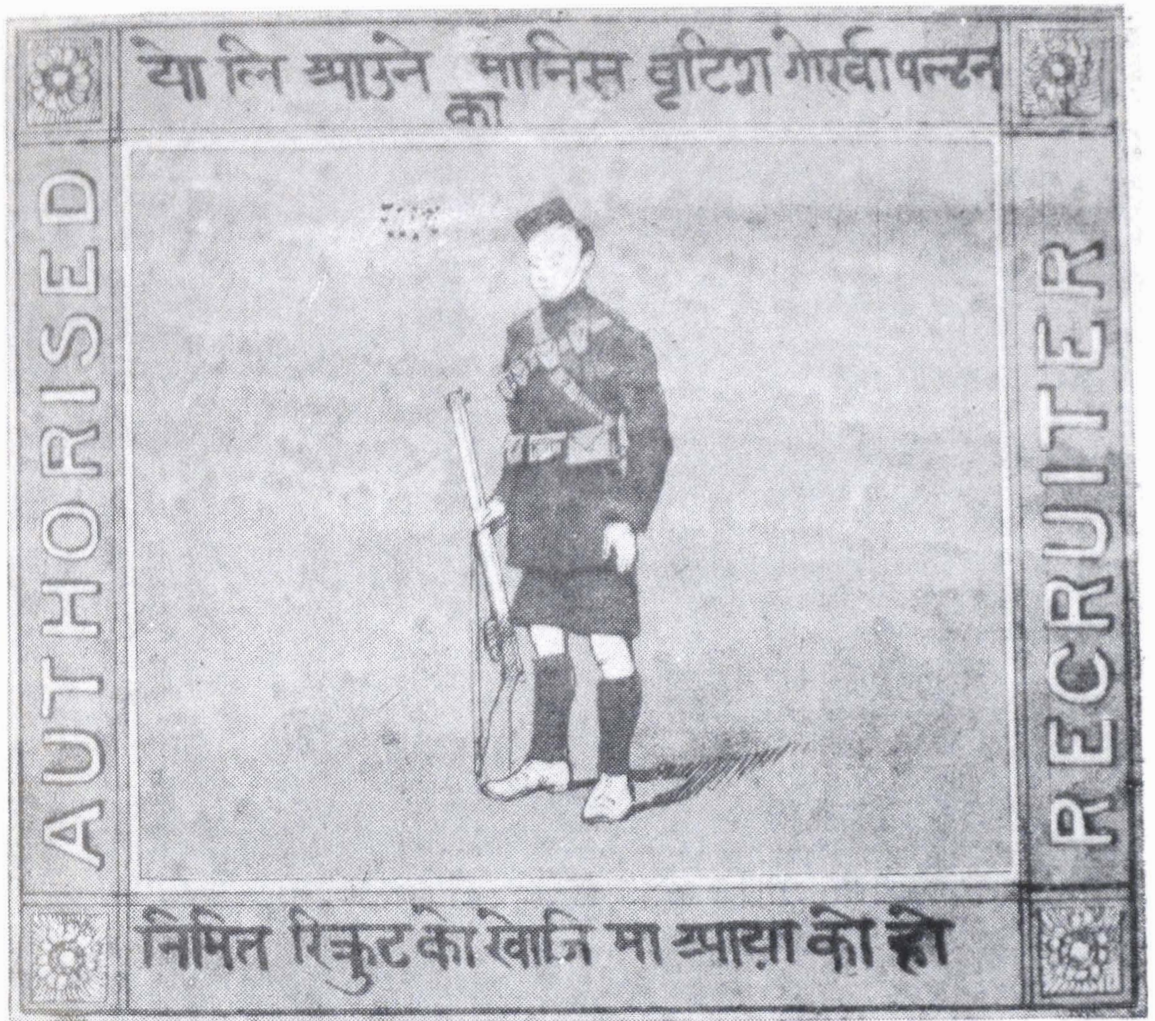 यो लि आउने मानिस बृटिश गोर्खा पल्टन
का
AUTHORISED
RECRUITER
निमित रिक्रुट को खोजि मा आया को हो